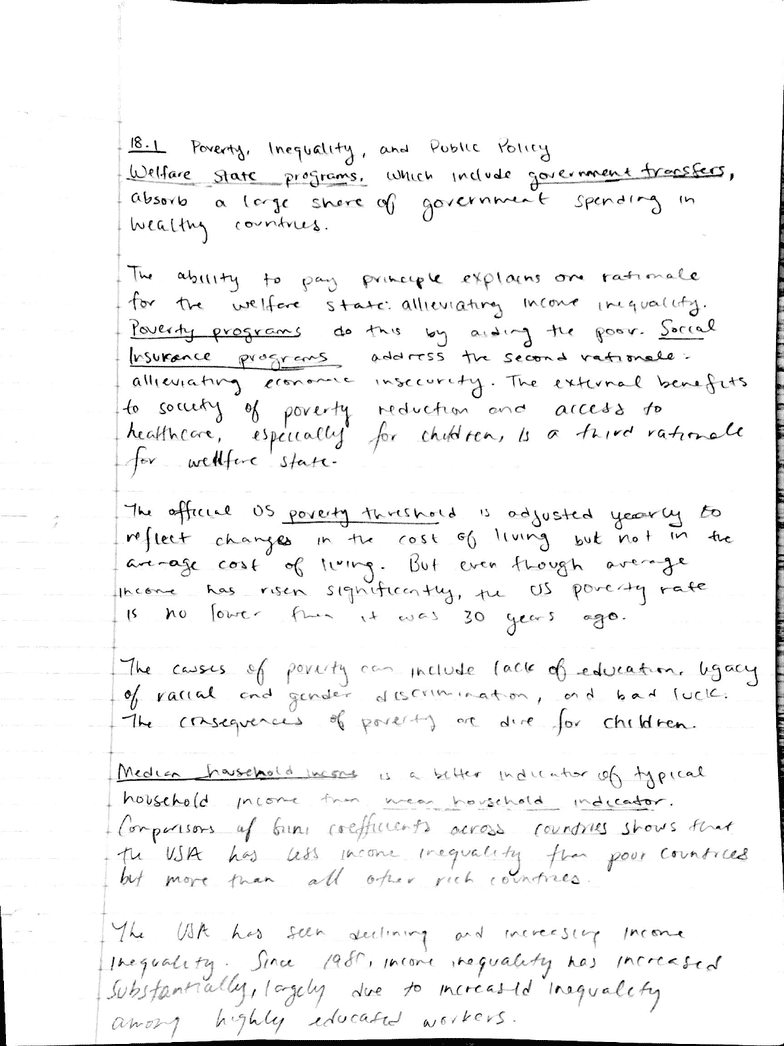 18.1 Poverty, Inequality, and Public Policy
Welfare state programs, which include government transfers,
absorb a large share of government spending in
wealthy countries.
The ability to pay principle explains one rationale
for the welfare state: allieviating income inequality.
Poverty programs do this by aiding the poor. Social
Insurance programs address the second rationale:
allieviating economic insecurity. The external benefits
to society of poverty reduction and access to
healthcare, especially for children, is a third rationale
for wellfare state.
The official US poverty threshold is adjusted yearly to
reflect changes in the cost of living but not in the
average cost of living. But even though average
income has risen significantly, the US poverty rate
is no lower than it was 30 years ago.
The causes of poverty can include lack of education, legacy
of racial and gender discrimination, and bad luck.
The consequences of poverty are dire for children.
Median household income is a better indicator of typical
household income than mean household indicator.
Comparisons of Gini coefficients across countries shows that
the USA has less income inequality than poor countries
but more than all other rich countries.
The USA has seen declining and increasing income
inequality. Since 1980, income inequality has increased
substantially, largely due to increased inequality
among highly educated workers.